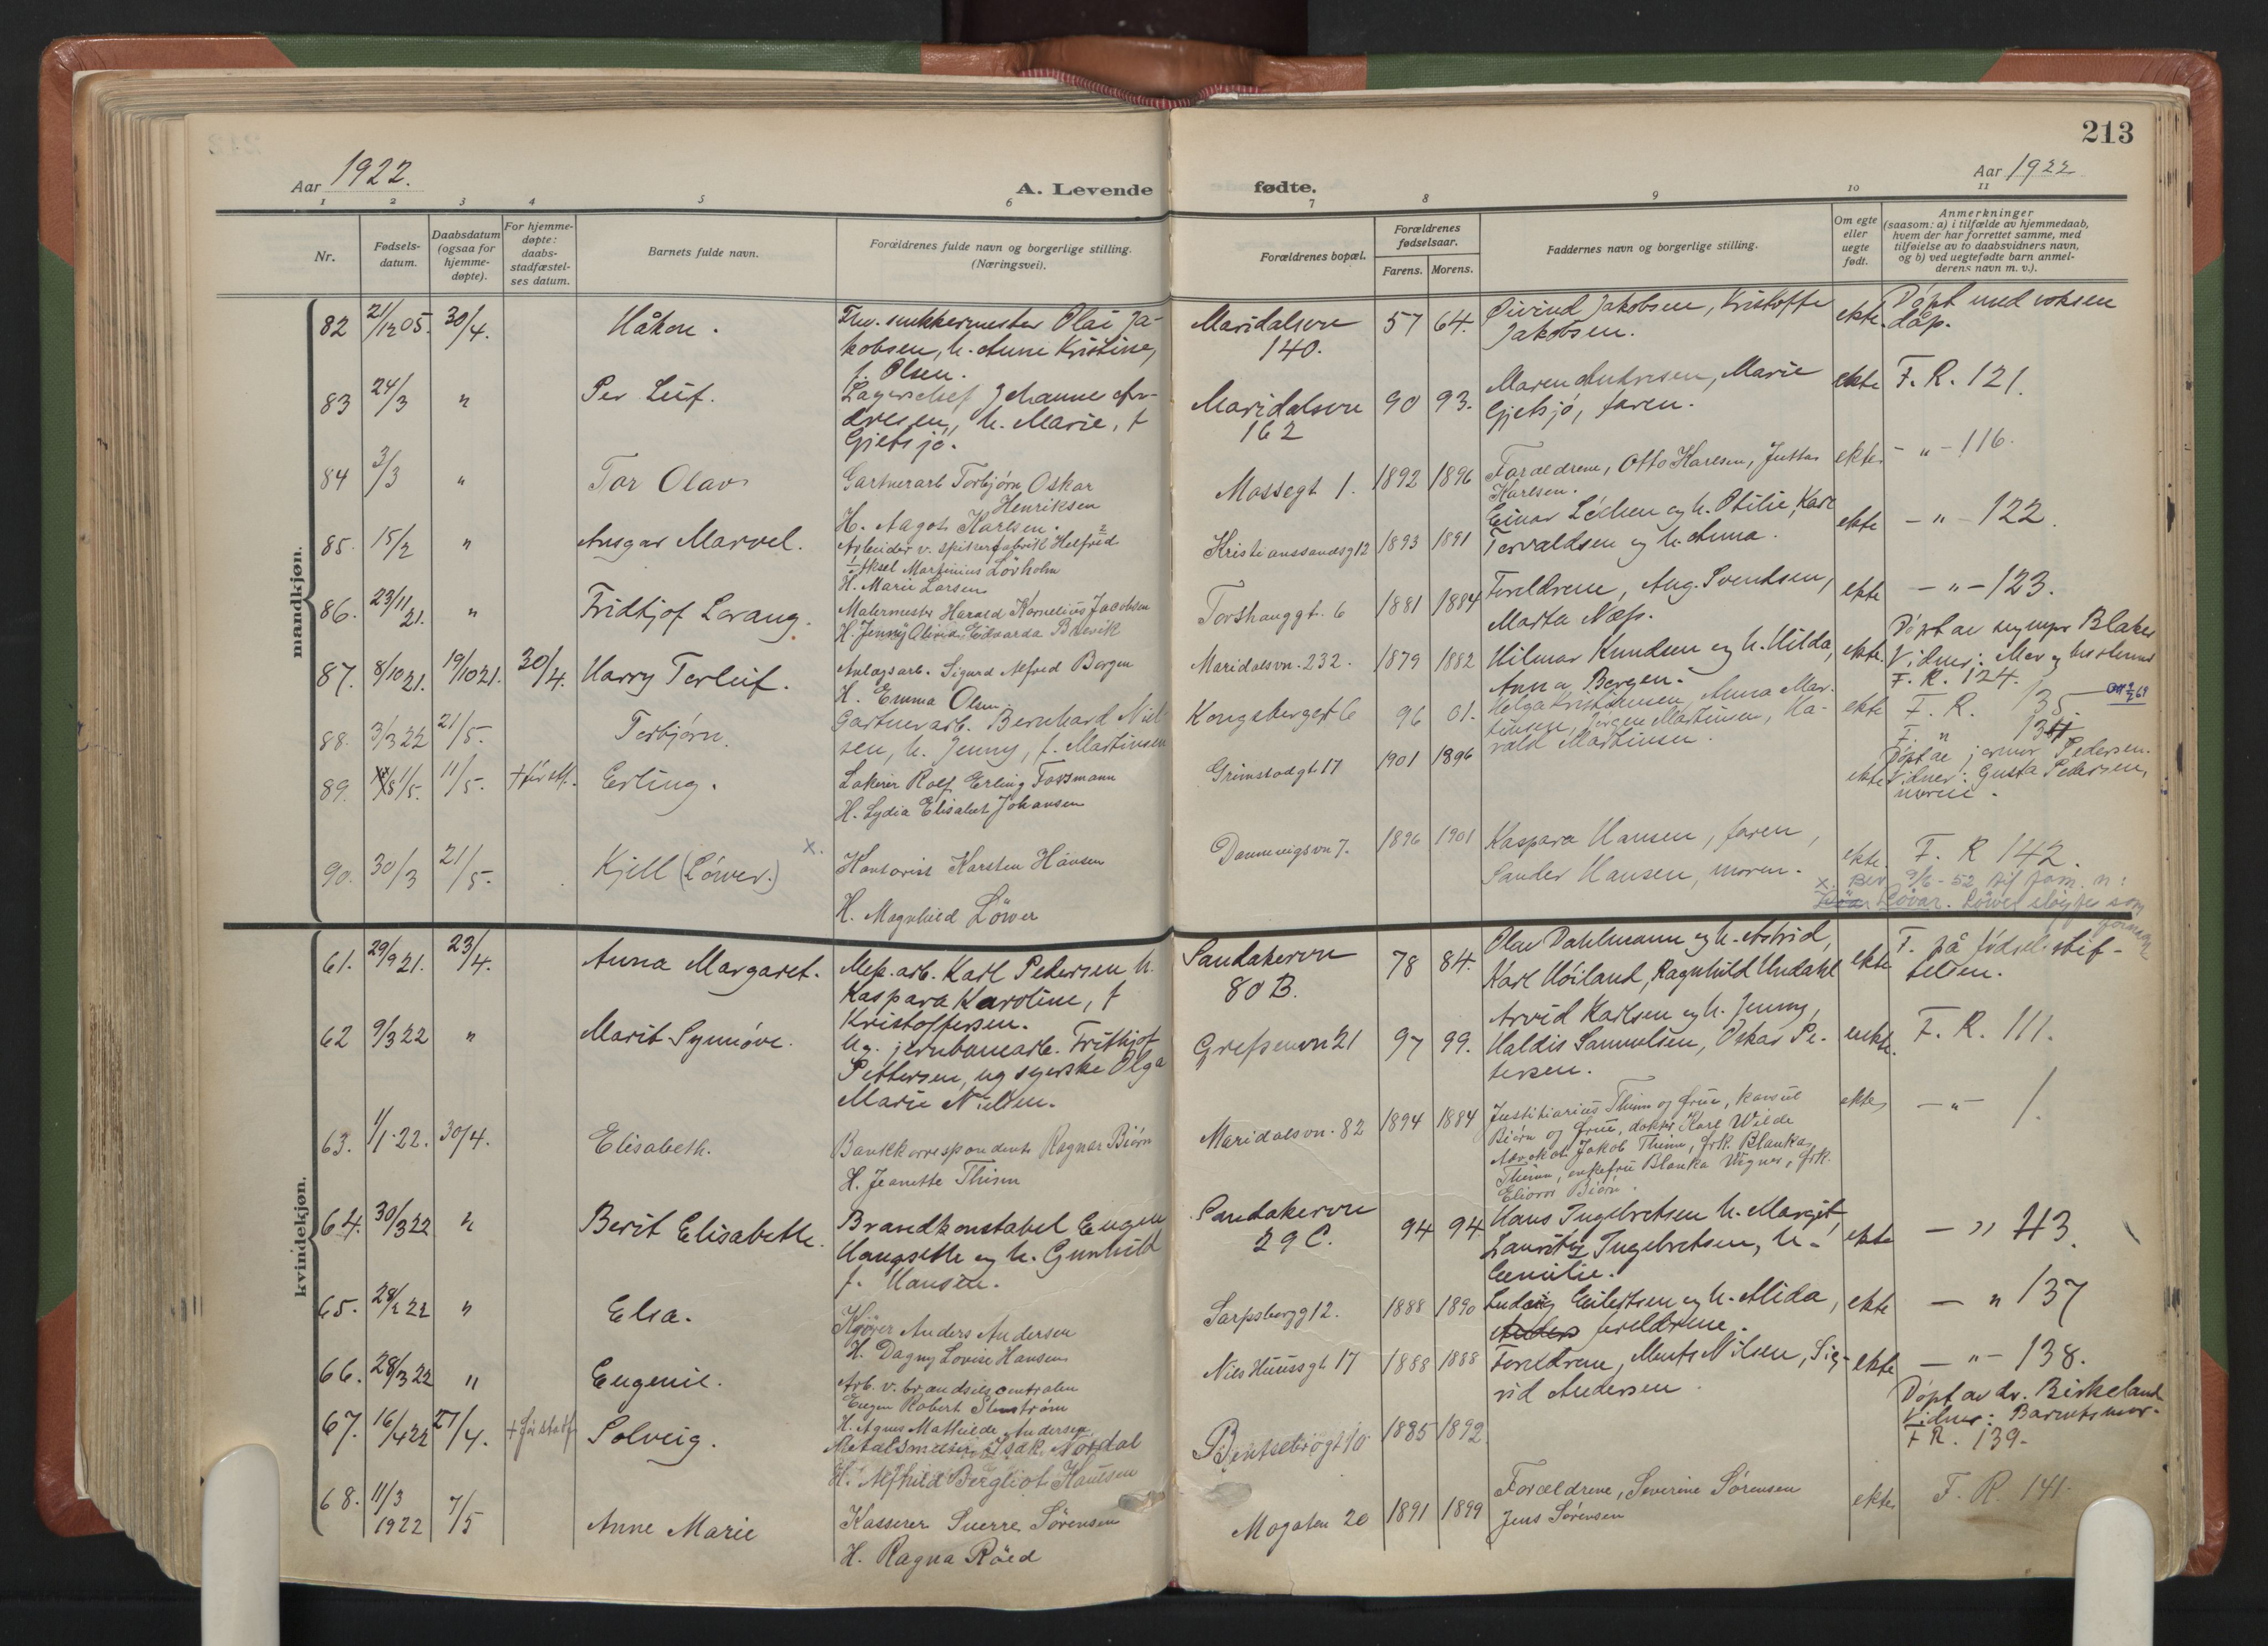 213
Aar 1922.
A. Levende
fødte.
Aar 1922
1 2 3 4 5 6 7 8 9 10 11
Nr.
Fødsels-
datum.
Daabsdatum
(ogsaa for
hjemme-
døpte).
For hjemme-
døpte:
daabs-
stadfæstel-
ses datum.
Barnets fulde navn.
Forældrenes fulde navn og borgerlige stilling.
(Næringsvei).
Forældrenes bopæl.
Forældrenes
fødselsaar.
Farens. Morens.
Faddernes navn og borgerlige stilling.
Om egte
eller
uegte
født.
Anmerkninger
(saasom: a) i tilfælde av hjemmedaab,
hvem der har forrettet samme, med
tilføielse av to daabsvidners navn,
og b) ved uegtefødte barn anmel-
derens navn m. v.).
mandkjøn.
82 21/12 05. 30/4. Håkon.
Olai Ja-
kobsen, h. Anne Kristine,
f. Olsen.
Maridalsvn
140.
57 64.
Øivind Jakobsen, Kristoffe
Jakobsen.
ekte.
Døpt med voksen
dåp.
83 24/3 " Per Leif.
Lagerchef Johannes An-
dresen, h. Marie, f
Gjetsjø.
Maridalsvn
162
90 93.
Maren Andresen, Marie
Gjetsjø, faren.
ekte F. R. 121.
84 3/3 " Tor Olav
Gartnerarb Torbjørn Oskar
Henriksen
H. Aagot Karlsen.
Mossegt 1. 1892 1896
Forældrene, Otto Karlsen, Justus
Karlsen.
ekte - " - 116.
85. 15/2 " Ansgar Marvel.
Arbeider v. spikerfabrik Helfred 2
1 Aksel Martinius Løvholm
H. Marie Larsen
Kristianssandsg 12 1893 1891
Einar Løchen og h. Otilie, Karl
Torvaldsen og h. Anna.
ekte - " - 122.
86. 23/11 21. " Fridtjof Lorang.
Malermester Harald Kornelius Jacobsen
H. Jenny Olivia Edvarda Brevik
Torshauggt. 6 1881 1884
Foreldrene, Aug. Svendsen,
Marta Næss.
ekte - " - 123.
87. 8/10 21. 19/10 21. 30/4. Harry Torleif.
Anlegsarb. Sigurd Alfred Borgen
H. Emma Olsen
Maridalsvn. 232. 1879 1882
Hilmar Knudsen og h. Hilda,
Anna Bergen.
ekte.
Døpt av Blaker
Vidner: Mor og
F. R. 124.
88. 3/3 22 21/5. Torbjørn.
Gartnerarb. Bernhard Niel-
sen, h. Jenny, f. Martinsen
Kongsberggt 6 96 01.
Helga Kristiansen, Anna Mar-
tinsen, Jørgen Martinsen, Ha-
rald Martinsen.
ekte F. R. 135.
89. 1/5. 11/5. Erling.
Lakerer Rolf Erling Fossmann
H. Lydia Elisabet Johansen
Grimstadgt. 17 1901 1896
ekte
F. "
Døpt av jormor Pedersen.
Vidner: Gusta Pedersen,
moren.
90. 30/3 21/5. Kjell (Löwer.) x.
Kontorist Karsten Hansen
H. Magnhild Löwer
Dannevigsvn 7. 1896 1901
Kaspara Hansen, faren,
Sander Hansen, moren.
ekte. F. R 142.
x. Bev 9/6-52 til fam. n:
Løvar. Löwer sløyfes som
fornavn
kvindekjøn.
61. 29/9 21. 23/4. Anna Margaret.
Mek. arb. Karl Pedersen h.
Kaspara Karoline, f
Kristoffersen.
Sandakervn
80 B.
78 84.
Olav Dahlmann og h. Astrid,
Karl Høiland, Ragnhild Undahl
ekte
F. på fødselsstif-
telsen.
62 9/3 22 " Marit Synnøve.
Ug. jernbanearb. Frithjof
Pettersen, ug syerske Olga
Marie Nielsen.
Grefsenvn 21 97 99.
Arvid Karlsen og h. Jenny,
Haldis Samuelsen, Oskar Pe-
tersen.
uekte. F. R. 111.
63. 1/1. 22. 30/4. Elisabeth.
Bankkorrespondent Ragnar Biørn
H. Jeanette Thinn
Maridalsvn. 82 1894 1884
Justitiarius Thinn og frue, konsul
Biørn og frue, doktor Karl Wilde
Advokat Jakob Thinn, frk. Blanka
Thinn, enkefru Blanka Wigner, frk.
Elionor Biørn.
ekte - " - 1.
64. 30/3 22 " Berit Elisabeth.
Brandkonstabel Eugen
Haugseth og h. Gunhild
f. Hansen.
Sandakervn
29 C.
94 94.
Hans Ingebretsen h. Margit,
Lauritz Ingebretsen, h.
Emilie.
ekte - " 43.
65. 28/2 22 " Elsa.
Kjører Anders Andersen
H. Dagny Lovise Hansen
Sarpsborgg 12. 1888 1890
Ludvig Eilertsen og h. Alida,
Anders foreldrene.
ekte - " 137
66. 28/3 22 " Eugenie.
Arb. v. brændselscentralen
Eugen Robert Stenstrøm
H. Agnes Mathilde Andersen
Niels Huusgt. 17 1888 1888
Foreldrene, Ments Nilsen, Sig-
rid Andersen.
ekte - " - 138.
67. 16/4 22 21/4. + før stadf. Solveig.
Isak Nordal
H. Alfhild Bergliot Knudsen
Bentsebrogt 10 1885 1892
Døpt av dr. Birkeland
Vidner: Barnets mor.
F R. 139.
68. 11/3 1922 7/5 Anne Marie
Kasserer Sverre Sørensen
H. Ragna Röed
Mogaten 20 1891 1899
Forældrene, Severine Sørensen
Jens Sørensen
ekte F. R. 141.